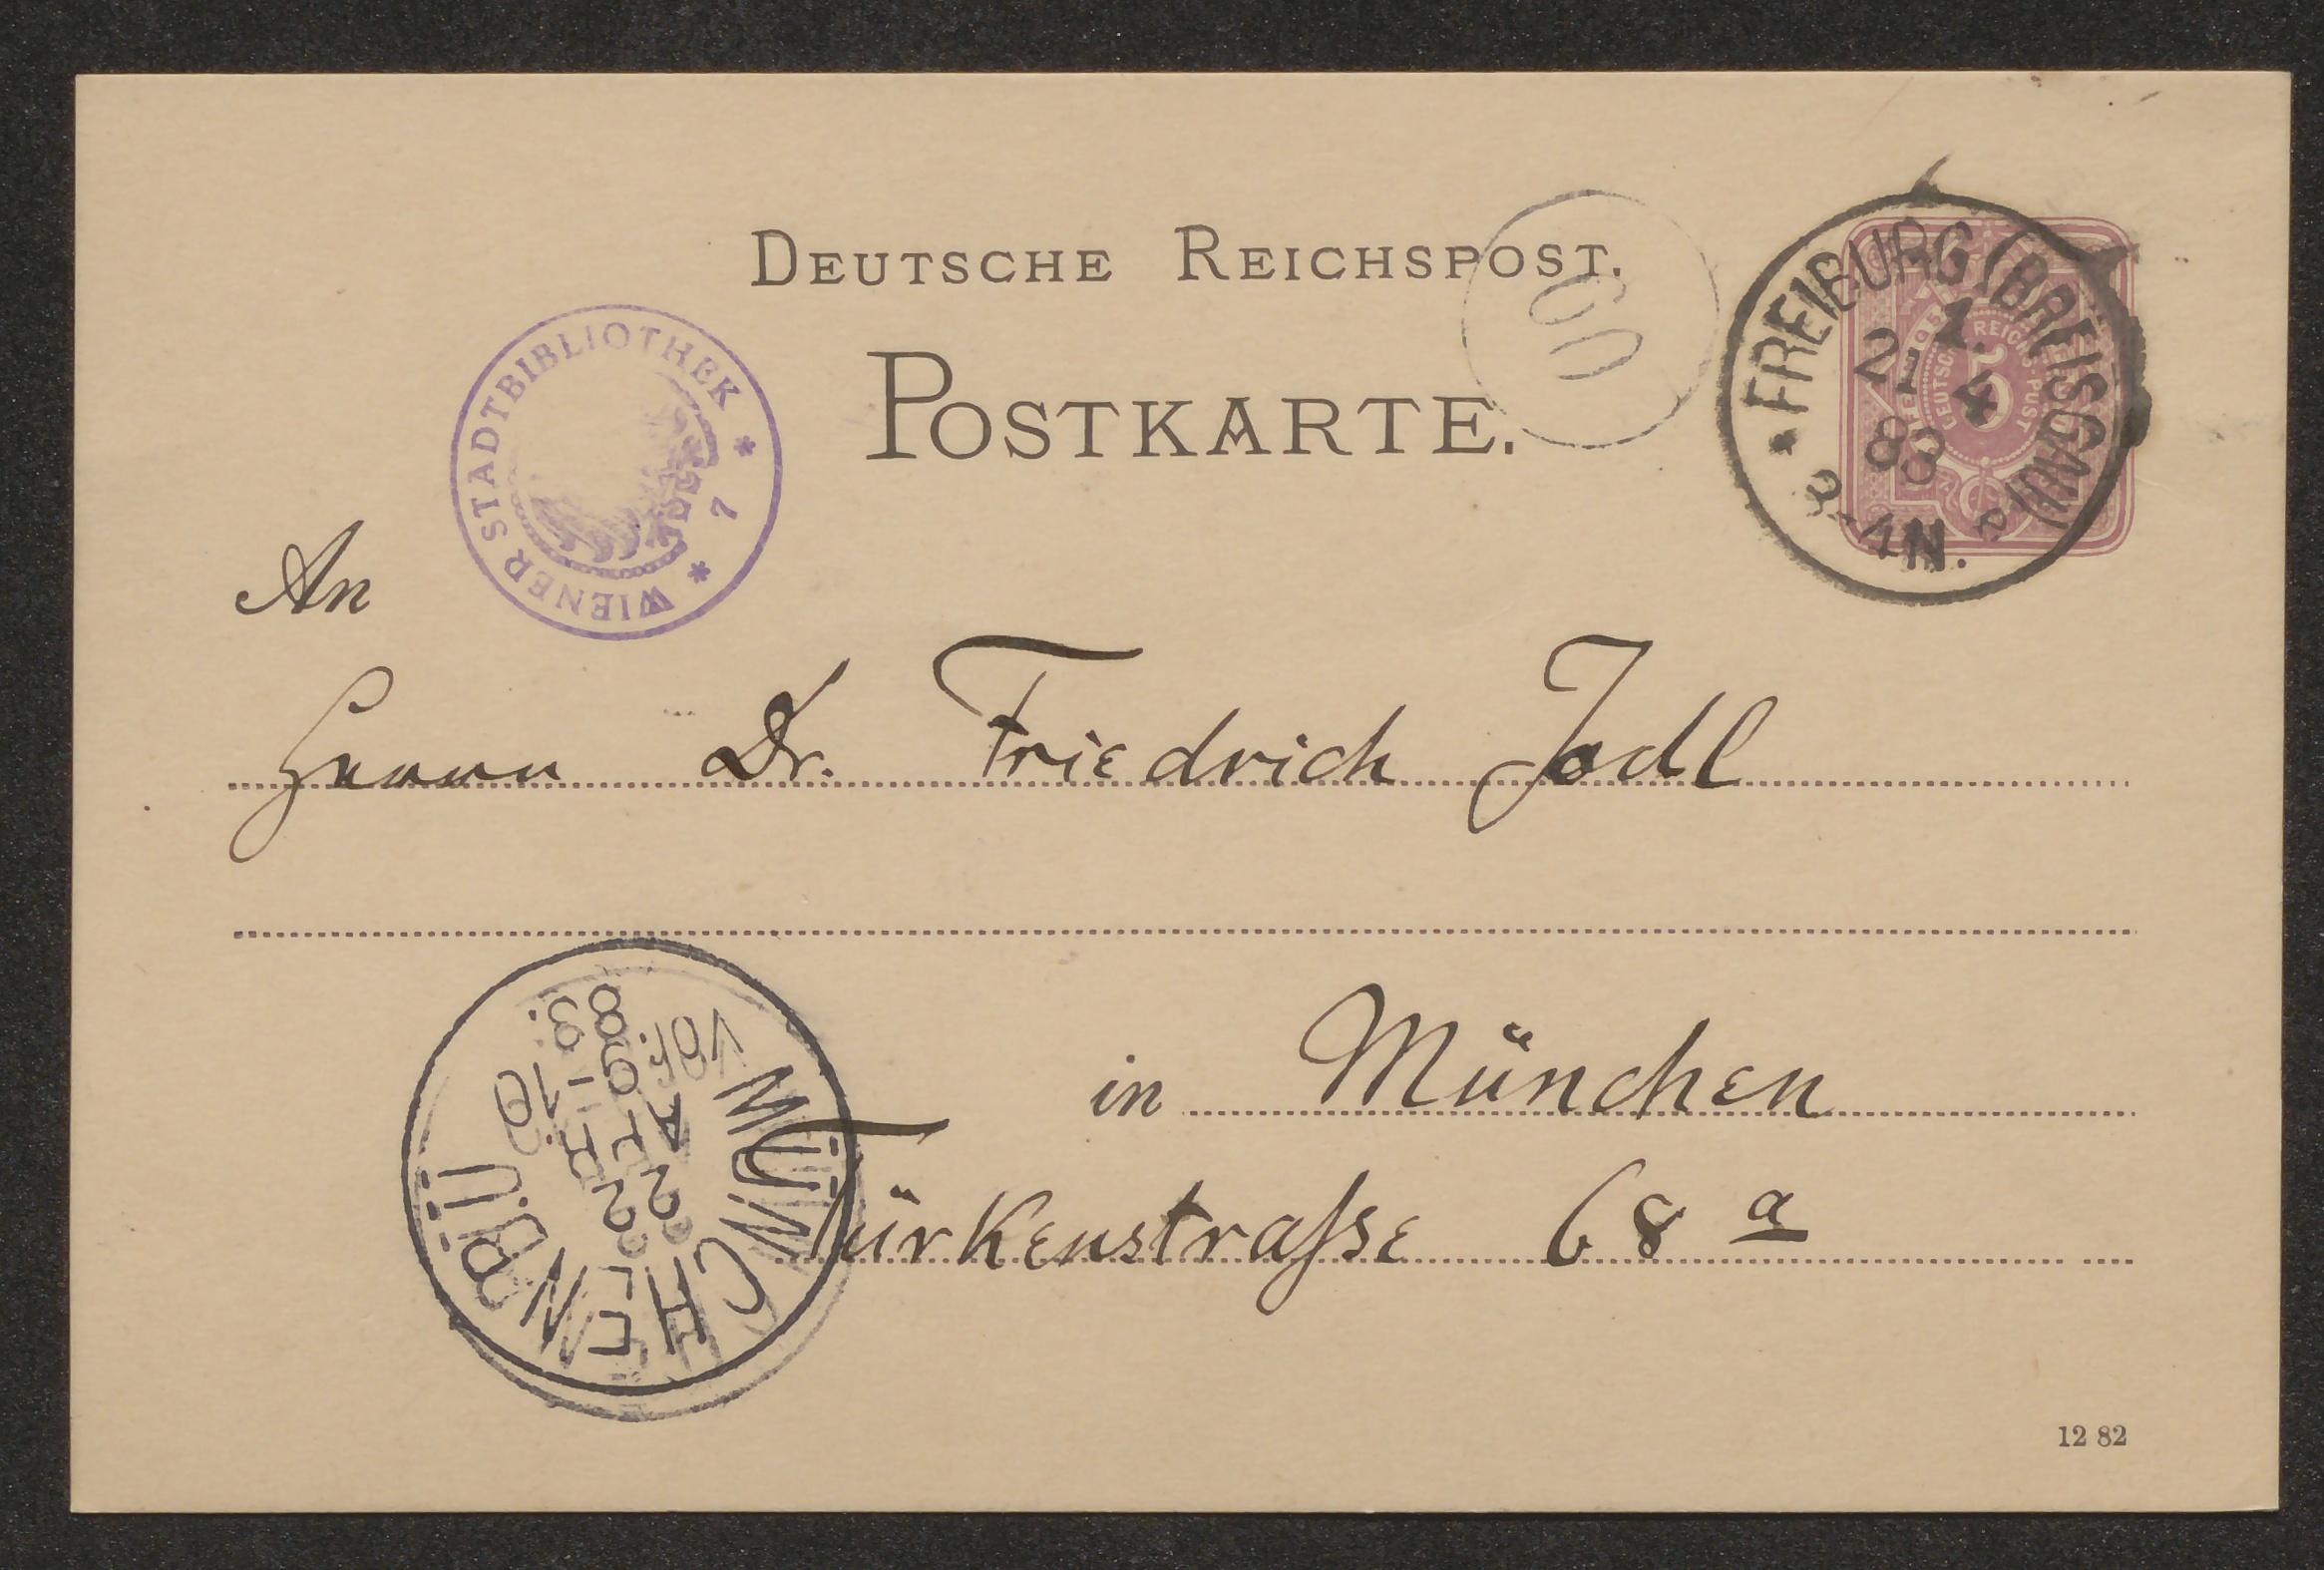 DEUTSCHE REICHSPOST.
POSTKARTE.
60
FREIBURG (BREISGAU)
21.
4
83
3-4N.
DEUTSCHE REICHS-POST
5
WIENER STADTBIBLIOTHEK
7
An
Herrn Dr. Friedrich Jodl
in München
Türkenstraſse 68 a
MÜNCHEN
12 82